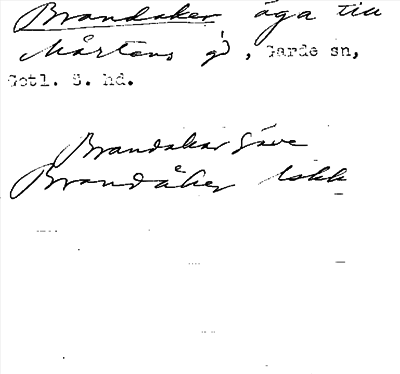 Brandaker äga till
Mårtens g), Garde sn,
Gotl. S. hd.
Brandakar Säve
Brandåker lokk